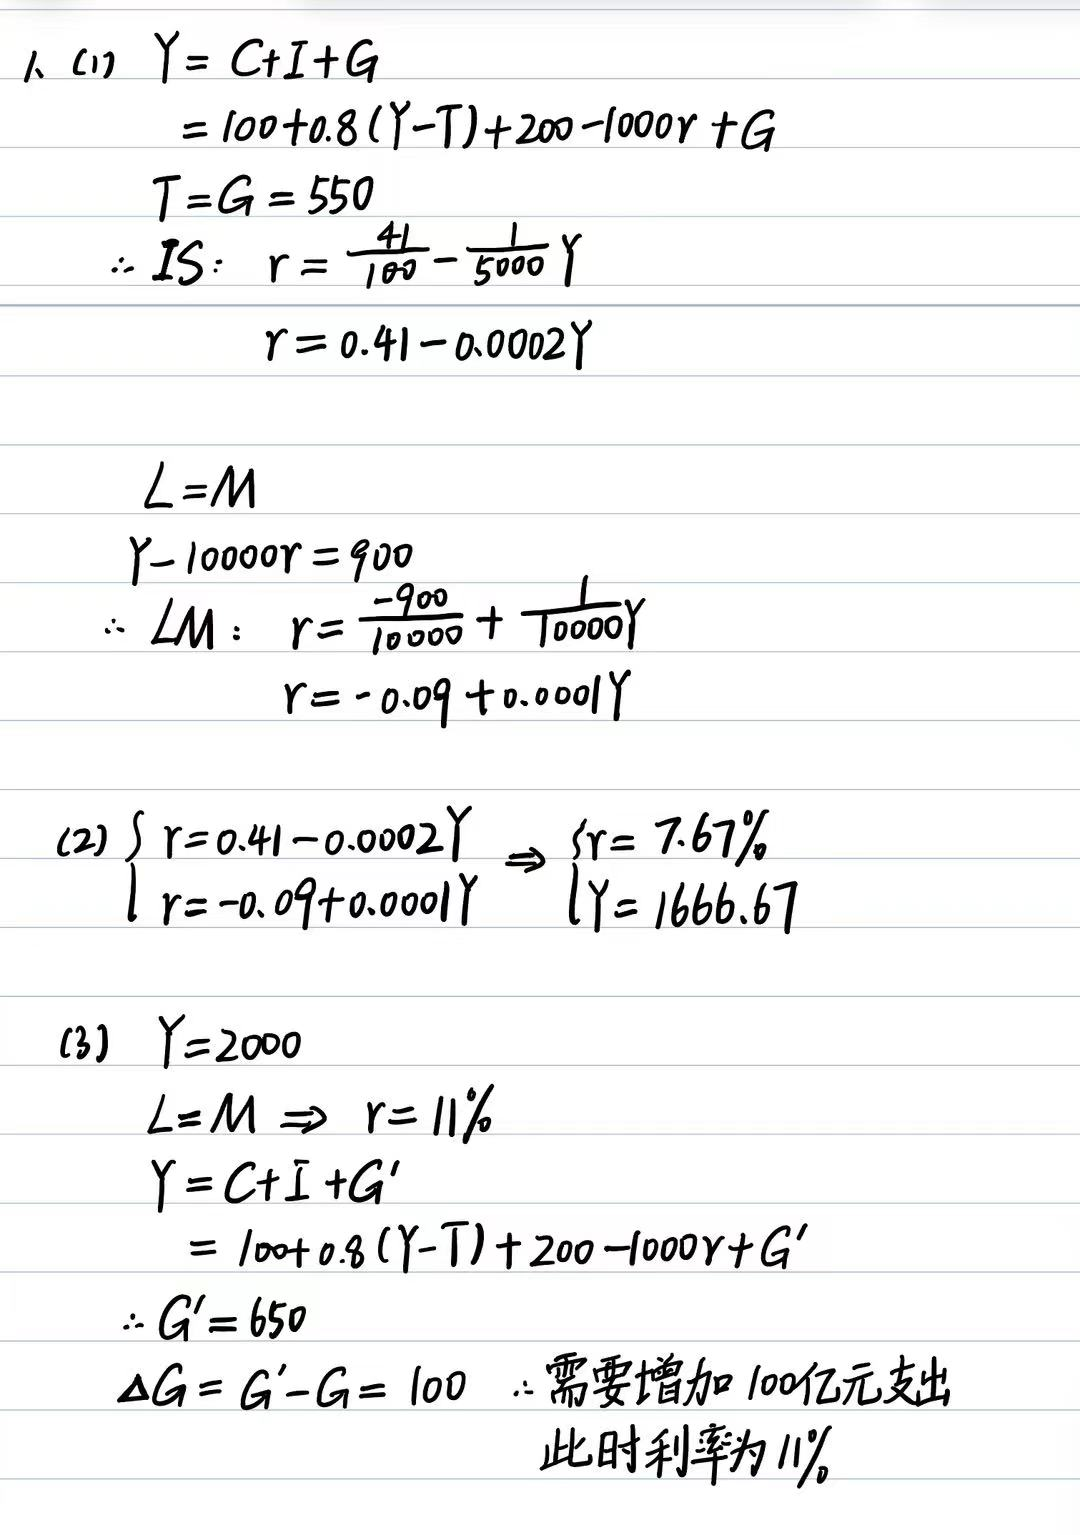 1、(1) Y = C+I+G
= 100+0.8(Y-T)+200-1000r+G
T=G=550
∴ IS: r = 41/100 - 1/5000 Y
r = 0.41-0.0002Y
L=M
Y-10000r=900
∴ LM: r = -900/10000 + 1/10000 Y
r = -0.09+0.0001Y
(2) { r=0.41-0.0002Y ⇒ { r= 7.67%
r=-0.09+0.0001Y Y= 1666.67
(3) Y=2000
L=M ⇒ r=11%
Y=C+I+G'
= 100+0.8(Y-T)+200-1000r+G'
∴ G'=650
ΔG = G'-G= 100 ∴ 需要增加100亿元支出
此时利率为11%